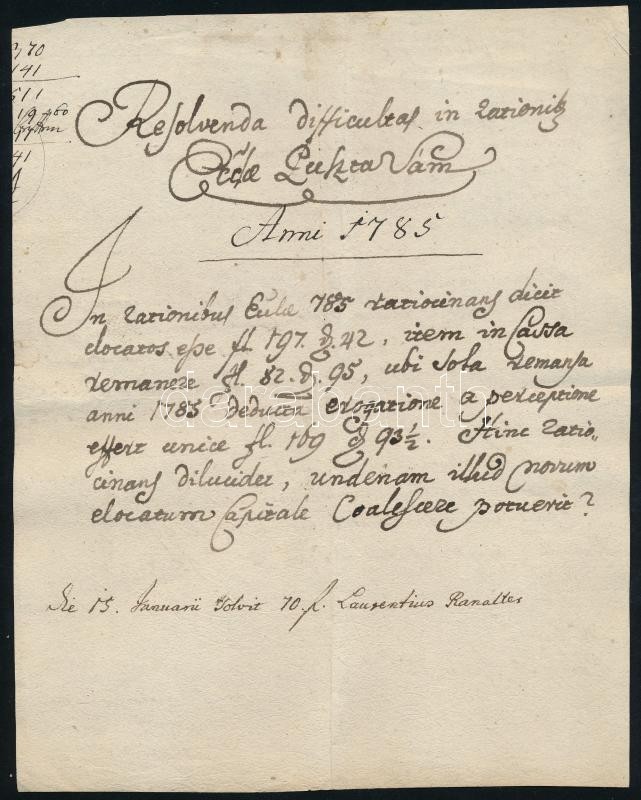 70
141
511
41
Resolvenda difficultas in rationib
Eccłae Puszta Vám
Anni 1785
In rationibus Eulae 785 ratiocinans dicit
elocatos esse fl. 197. d. 42, item in Cassa
remanere fl. 82. d. 95, ubi sola remansa
anni 1785 deducta erogatione a perceptione
effert unice fl. 109 d 93½. Hinc ratio„
cinans dilucidet, undenam illud novum
elocatum Capitale Coalescere potuerit?
Die 15. Januarii solvit 70. f. Laurentius Ranalter
darabanth